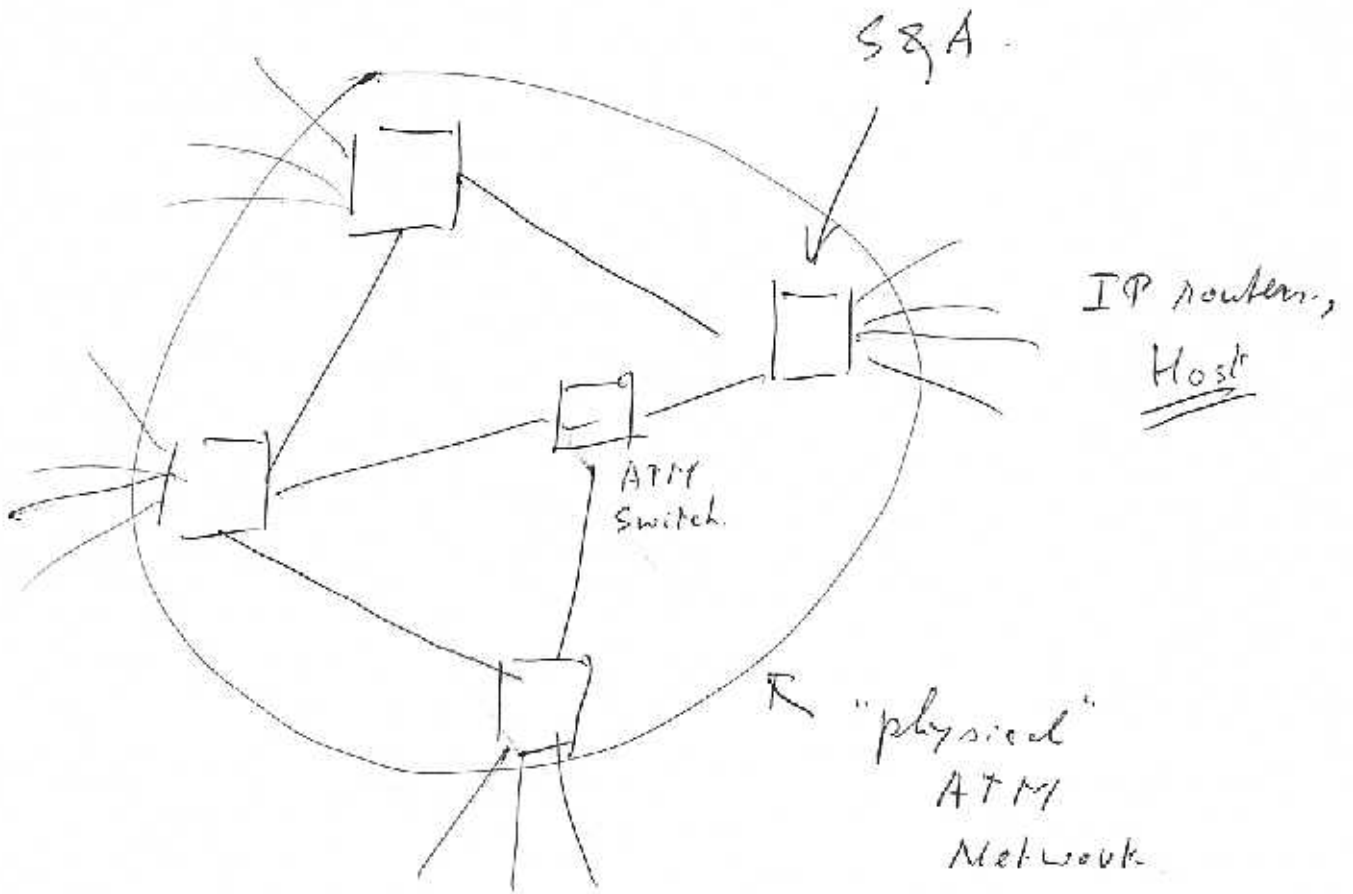 S & A.
IP routers,
Host
ATM
Switch.
"physical"
ATM
Network